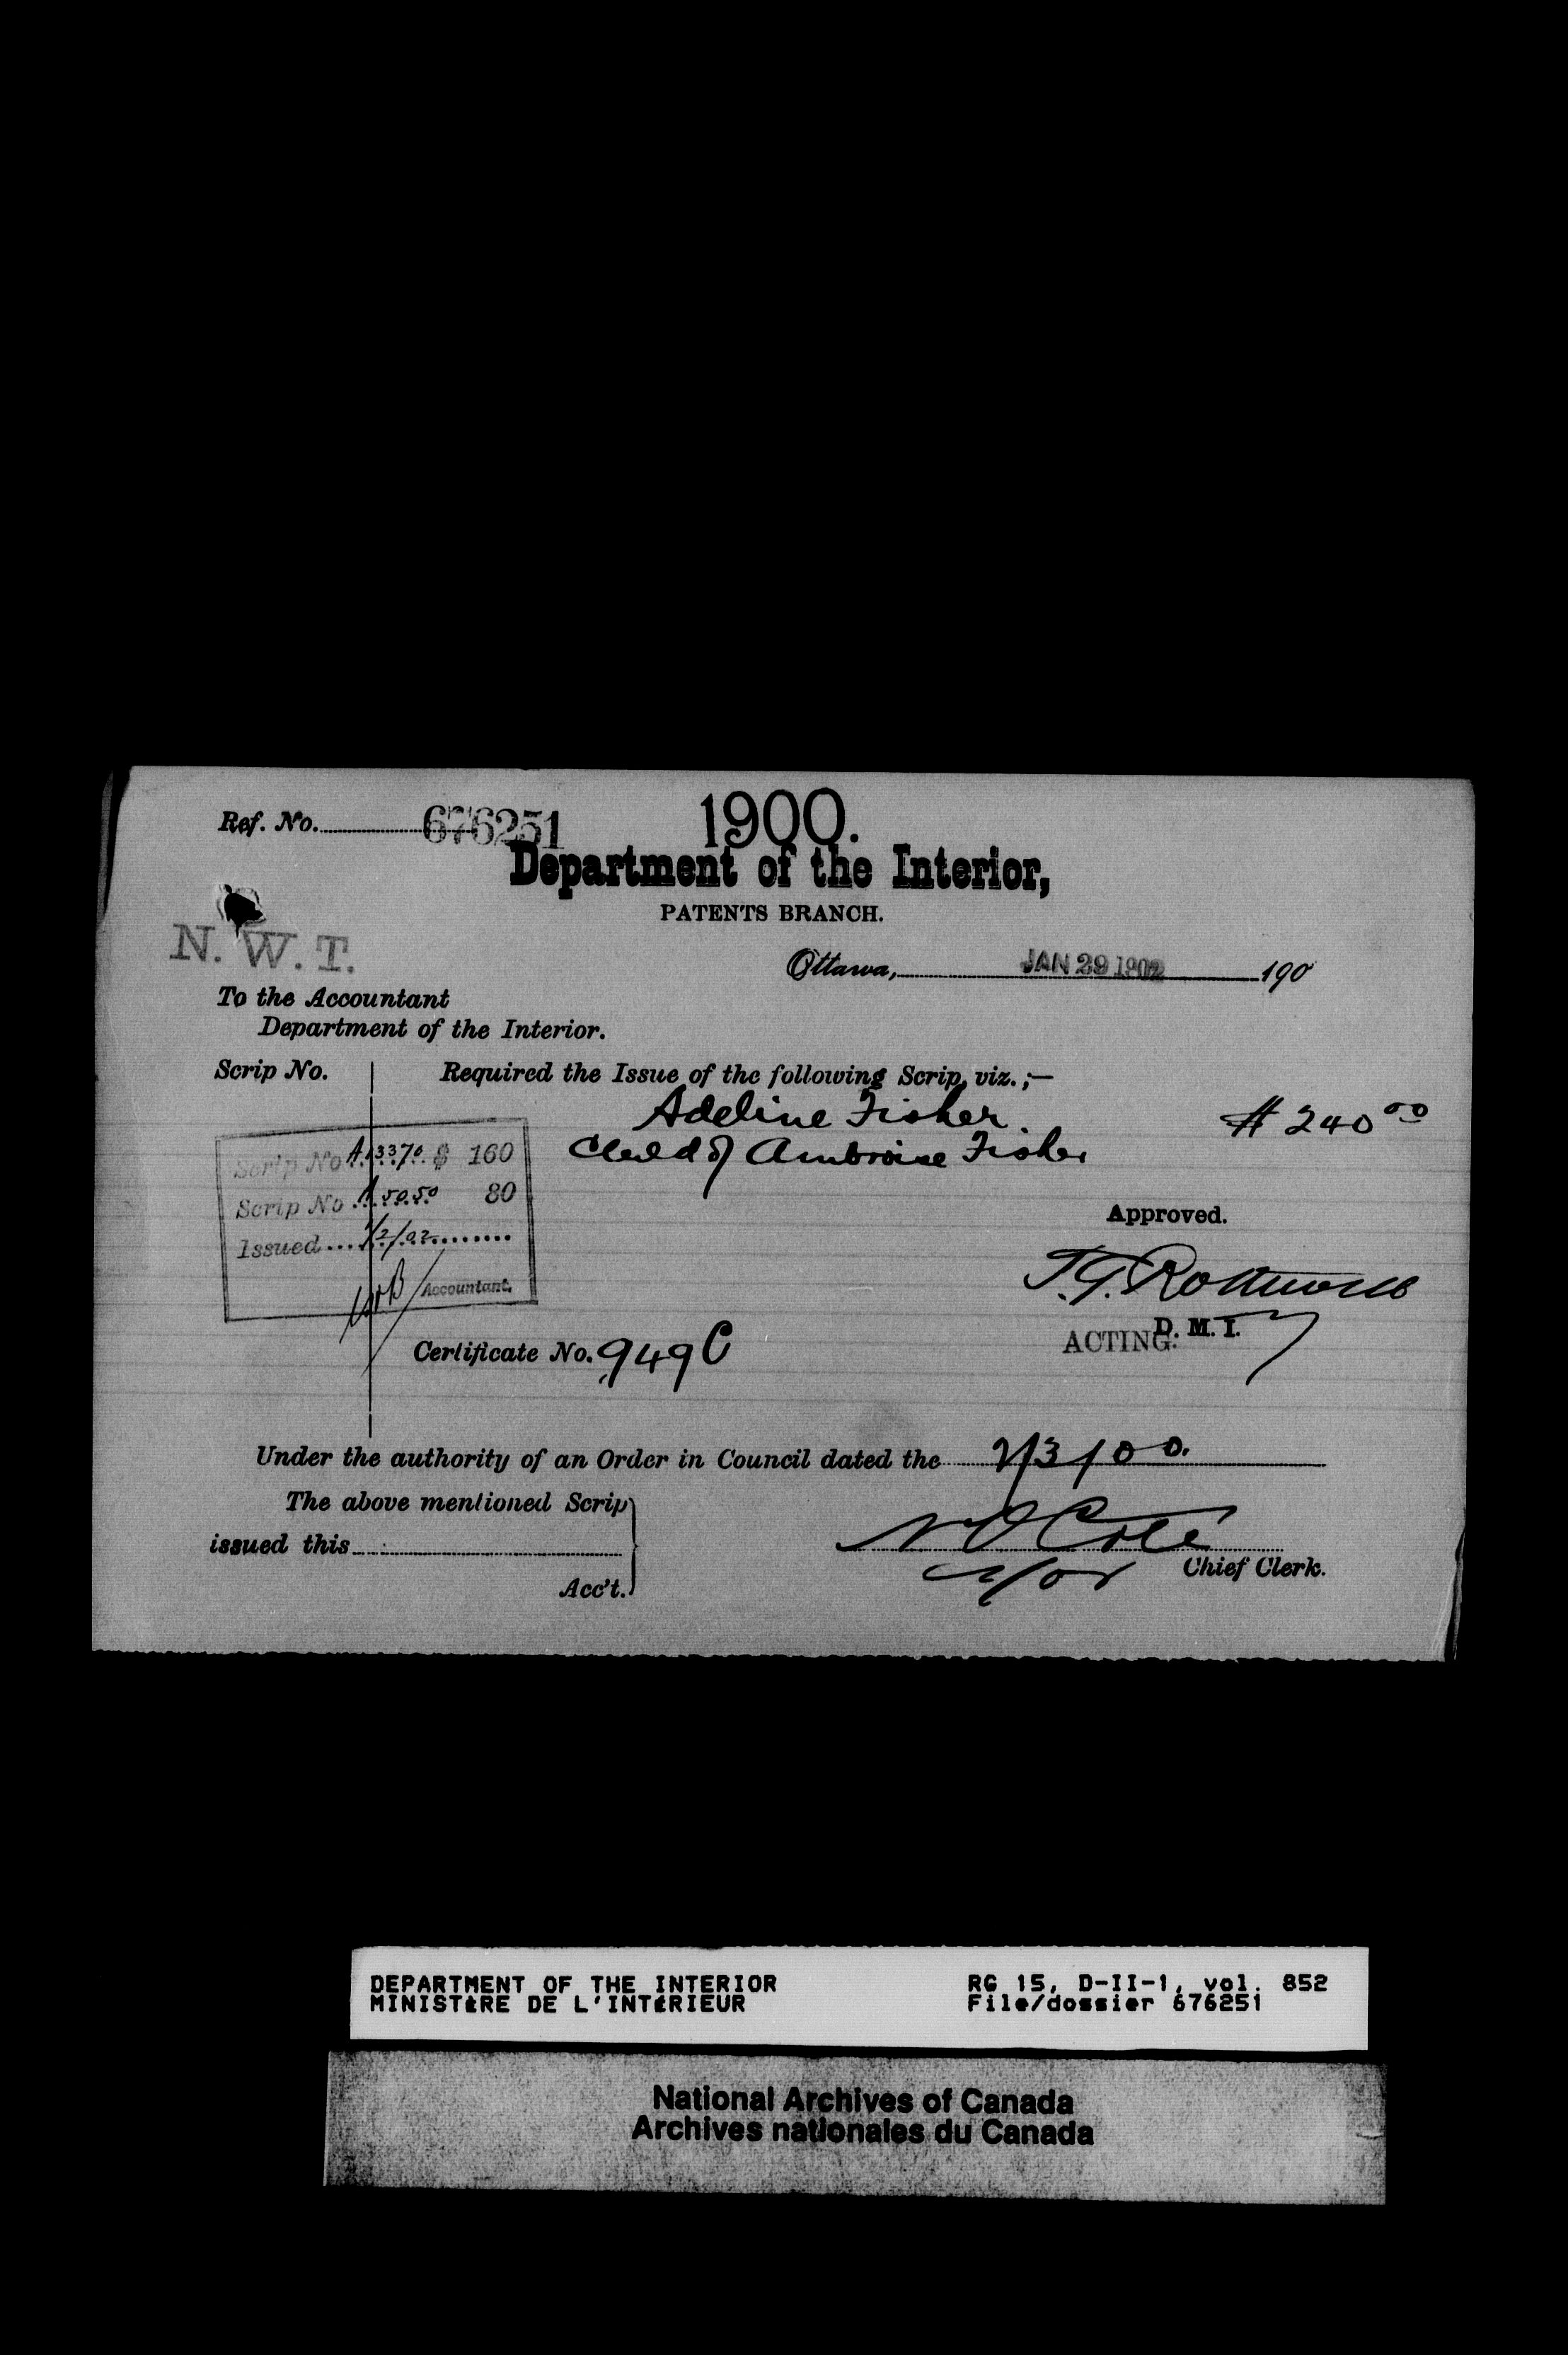 Ref. No. 676251
1900.
Department of the Interior,
PATENTS BRANCH.
N. W. T.
Ottawa, JAN 29 1902 190
To the Accountant
Department of the Interior.
Scrip No. Required the Issue of the following Scrip, viz.;—
Adeline Fisher. $ 240 00
Child of Ambroise Fisher
Scrip No A.13370 $ 160
Scrip No A 5050 80
Issued 1/2/02
Accountant.
Approved.
T.G. Rothwell
D. M. I.
ACTING.
Certificate No. 949 C
Under the authority of an Order in Council dated the 2/3/00.
The above mentioned Scrip
issued this
Acc't.
N O Cote
Chief Clerk.
DEPARTMENT OF THE INTERIOR
MINISTÈRE DE L'INTÉRIEUR
RG 15, D-II-1, vol. 852
File/dossier 676251
National Archives of Canada
Archives nationales du Canada